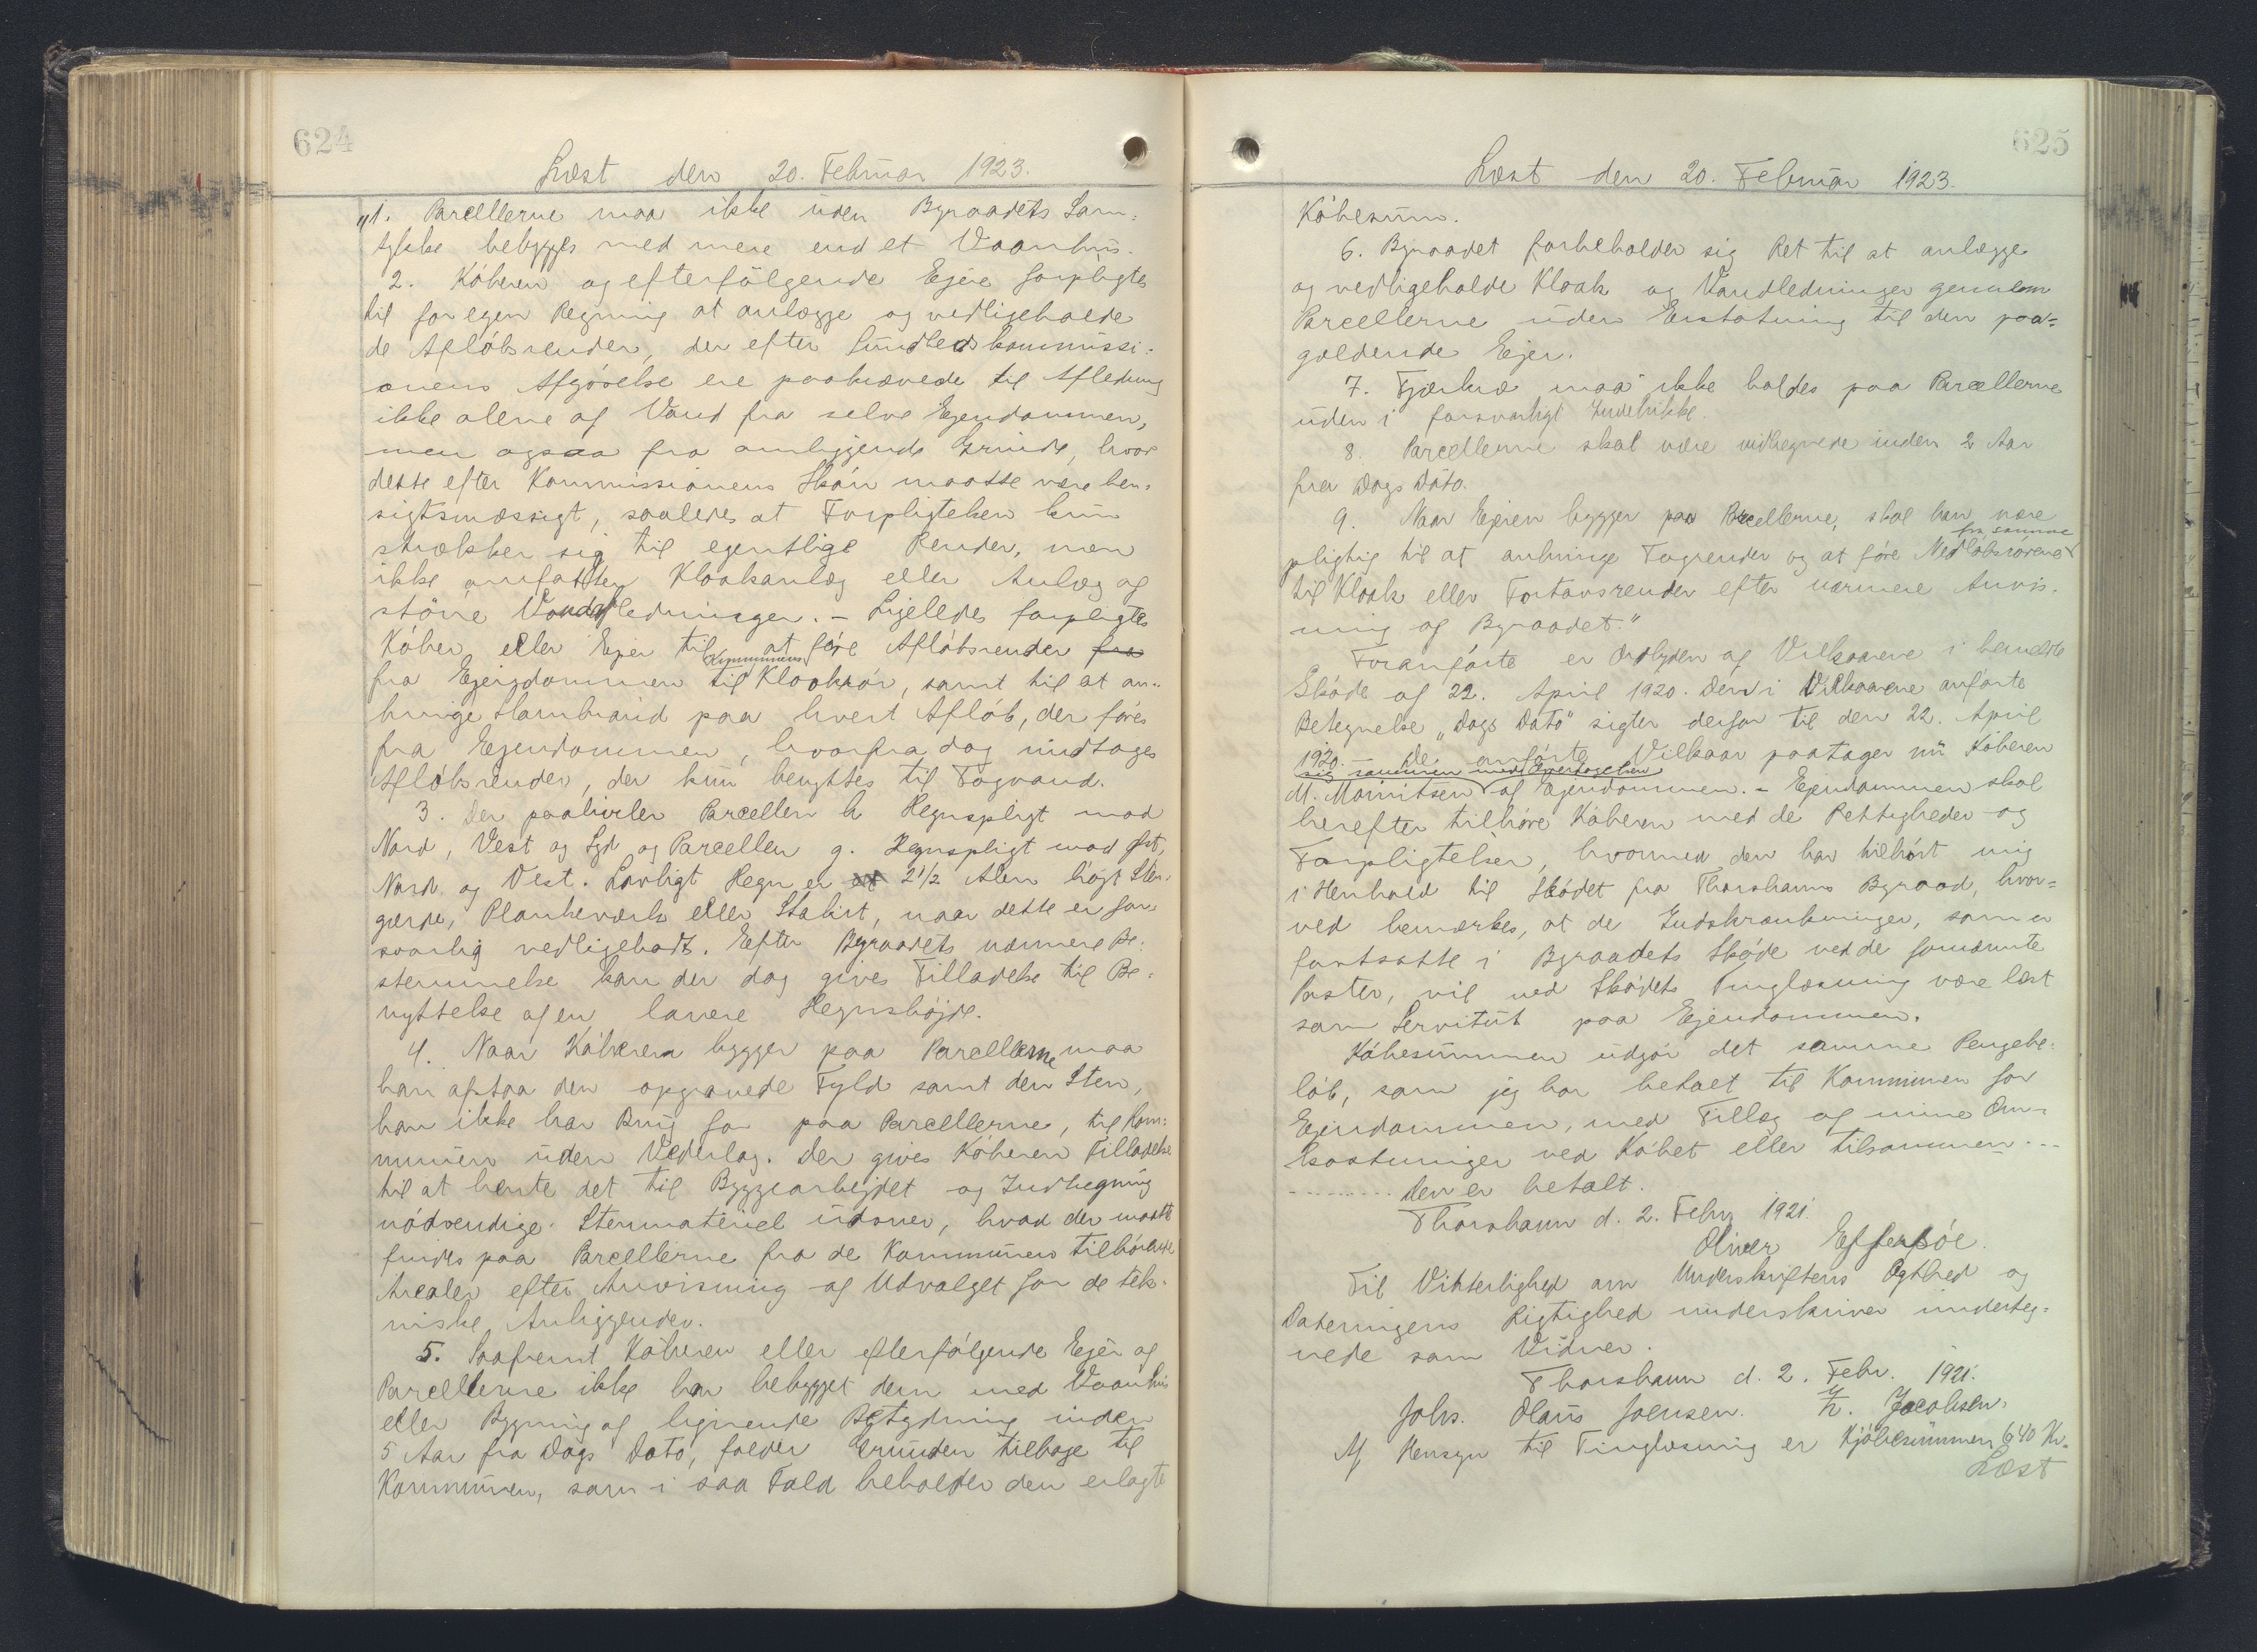 624
Læst den 20. Februar 1923.
"1. Parcellerne maa ikke uden Byraadets Sam=
tykke bebygges med mere end et Vaanhus.
2. Köberen og efterfölgende Ejere forpligtes
til for egen Regning at anlægge og vedligeholde
de Aflöbsrender, der efter Sundhedskommissi=
onens Afgörelse ere paakrævede til Afledning
ikke alene af Vand fra selve Ejendommen,
men ogsaa fra omliggende Grunde, hvor
dette efter Kommissionens Skön maatte være hen=
sigtsmæssigt, saaledes at Forpligtelsen kun
strækker sig til egentlige Render, men
ikke omfatter Kloakanlæg eller Anlæg af
större Vandledninger. - Ligeledes forpligtes
Köber eller Ejer til at före Aflöbsrender fra
fra Ejendommen til Kommunens Kloakrör, samt til at an=
bringe Slambrønd paa hvert Aflöb, der föres
fra Ejendommen, hvorfra dog undtages
Aflöbsrender, der kun benyttes til Tagvand.
3. Der paahviler Parcellen h Hegnspligt mod
Nord, Vest og Syd og Parcellen g. Hegnspligt mod Øst,
Nord og Vest. Lovligt Hegn er et 2 1/2 Alen höjt Sten=
gærde, Plankeværk eller Stakit, naar dette er for=
svarlig vedligeholdt. Efter Byraadets nærmere Be=
stemmelse kan der dog gives Tilladelse til Be=
nyttelse af en lavere Hegnshöjde.
4. Naar Köberen bygger paa Parcellerne maa
han afstaa den opgravede Fyld samt den Sten,
han ikke har Brug for paa Parcellerne, til Kom=
munen uden Vederlag. Der gives Köberen Tilladelse
til at hente det til Byggearbejdet og Indhegning
nödvendige Stenmateriel udover, hvad der maatte
findes paa Parcellerne fra de Kommunen tilhörende
Arealer efter Anvisning af Udvalget for de tek=
niske Anliggender.
5. Saafremt Köberen eller efterfölgende Ejer af
Parcellerne ikke har bebygget dem med Vaanhus
eller Bygning af lignende Betydning inden
5 Aar fra Dags Dato, falder Grunden tilbage til
Kommunen, som i saa Fald beholder den erlagte
625
Læst den 20. Februar 1923.
Köbesum.
6. Byraadet forbeholder sig Ret til at anlægge
og vedligeholde Kloak og Vandledninger gennem
Parcellerne uden Erstatning til den paa=
gældende Ejer.
7. Fjerkræ maa ikke holdes paa Parcellerne
uden i forsvarligt Indelukke.
8. Parcellerne skal være indhegnede inden 2 Aar
fra Dags Dato.
9. Naar Ejeren bygger paa Parcellerne, skal han være
pligtig til at anbringe Tagrender og at före Nedlöbsrörene fra samme
til Kloak eller Fortovsrender efter nærmere Anvis=
ning af Byraadet."
Foranförte er Ordlyden af Vilkaarene i bemeldte
Sköde af 22. April 1920. Den i Vilkaarene anförte
Betegnelse "Dags Dato" sigter derfor til den 22. April
1920. - De anförte Vilkaar paatager nu Köberen
M. Mouritsen sig sammen med Overtagelsen af Ejendommen. - Ejendommen skal
herefter tilhöre Köberen med de Rettigheder og
Forpligtelser, hvormed den har tilhört mig
i Henhold til Sködet fra Thorshavns Byraad, hvor=
ved bemærkes, at de Indskrænkninger, som er
fastsatte i Byraadets Sköde ved de fornævnte
Poster, vil ved Sködets Tinglæsning være læst
som Servitut paa Ejendommen.
Köbesummen udgör det samme Pengebe=
löb, som jeg har betalt til Kommunen for
Ejendommen, med Tillæg af mine Om=
kostninger ved Köbet eller tilsammen ...
......... Den er betalt.
Thorshavn d. 2. Febr. 1921.
Oliver Effersöe.
Til Vitterlighed om Underskriftens Ægthed og
Dateringens Rigtighed underskriver underteg=
nede som Vidner.
Thorshavn d. 2. Febr. 1921.
Johs. Olaus Joensen. H. Jacobsen.
Af Hensyn til Tinglæsning er Kjöbesummen 640 Kr.
Læst